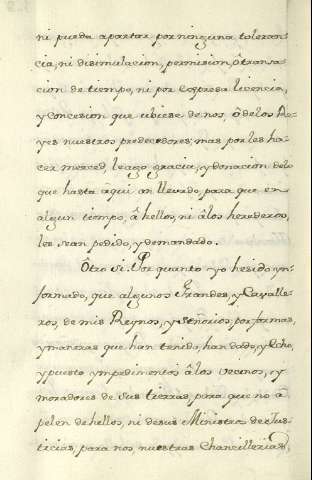 ni pueda apartar por ninguna toleran-
cia, ni disimulacion, permision, ô transa-
cion de tiempo, ni por expresa licencia,
y concesion que ubiese de nos, ô delos Re-
yes nuestros predecesores; mas por les ha-
cer merced, le ago gracia, y donacion delo
que hasta aqui an llevado, para que en
algun tiempo, â hellos, ni âlos herederos,
les sean pedido, y demandado.
Ôtro si. Por quanto yo he sido yn-
formado, que algunos Grandes, y Cavalle-
ros, de mis Reynos, y Señorios, por formas,
y maneras que han tenido, han dado, y echo,
y puesto ympedimentos âlos vecinos, y
moradores de sus tierras, para que no â
pelen de hellos, ni de sus Ministros de Jus-
ticias, para nos, nuestras Chancillerias,